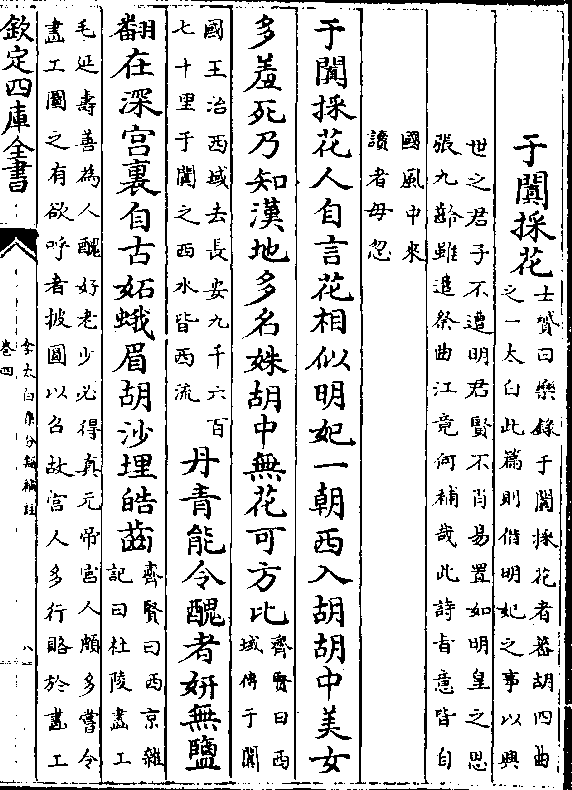 于闐採花
士贇曰樂錄于闐採花者蕃胡四曲
之一太白此篇則借明妃之事以興
世之君子不遭明君賢不肖易置如明皇之思
張九齡雖追祭曲江竟何補哉此詩旨意皆自
國風中來
讀者毋忽
于闐採花人自言花相似明妃一朝西入胡胡中美女
多羞死乃知漢地多名姝胡中無花可方比
齊賢曰西
域傳于闐
國王治西域去長安九千六百
七十里于闐之西水皆西流
丹青能令醜者妍無鹽
翻在深宫裏自古妬蛾眉胡沙埋皓齒
齊賢曰西京雜
記曰杜陵畫工
毛延壽善為人醜好老少必得真元帝宫人頗多嘗令
畫工圖之有欲呼者披圖以召故宫人多行賂於畫工
欽定四庫全書
李太白集分類補註
卷四
八